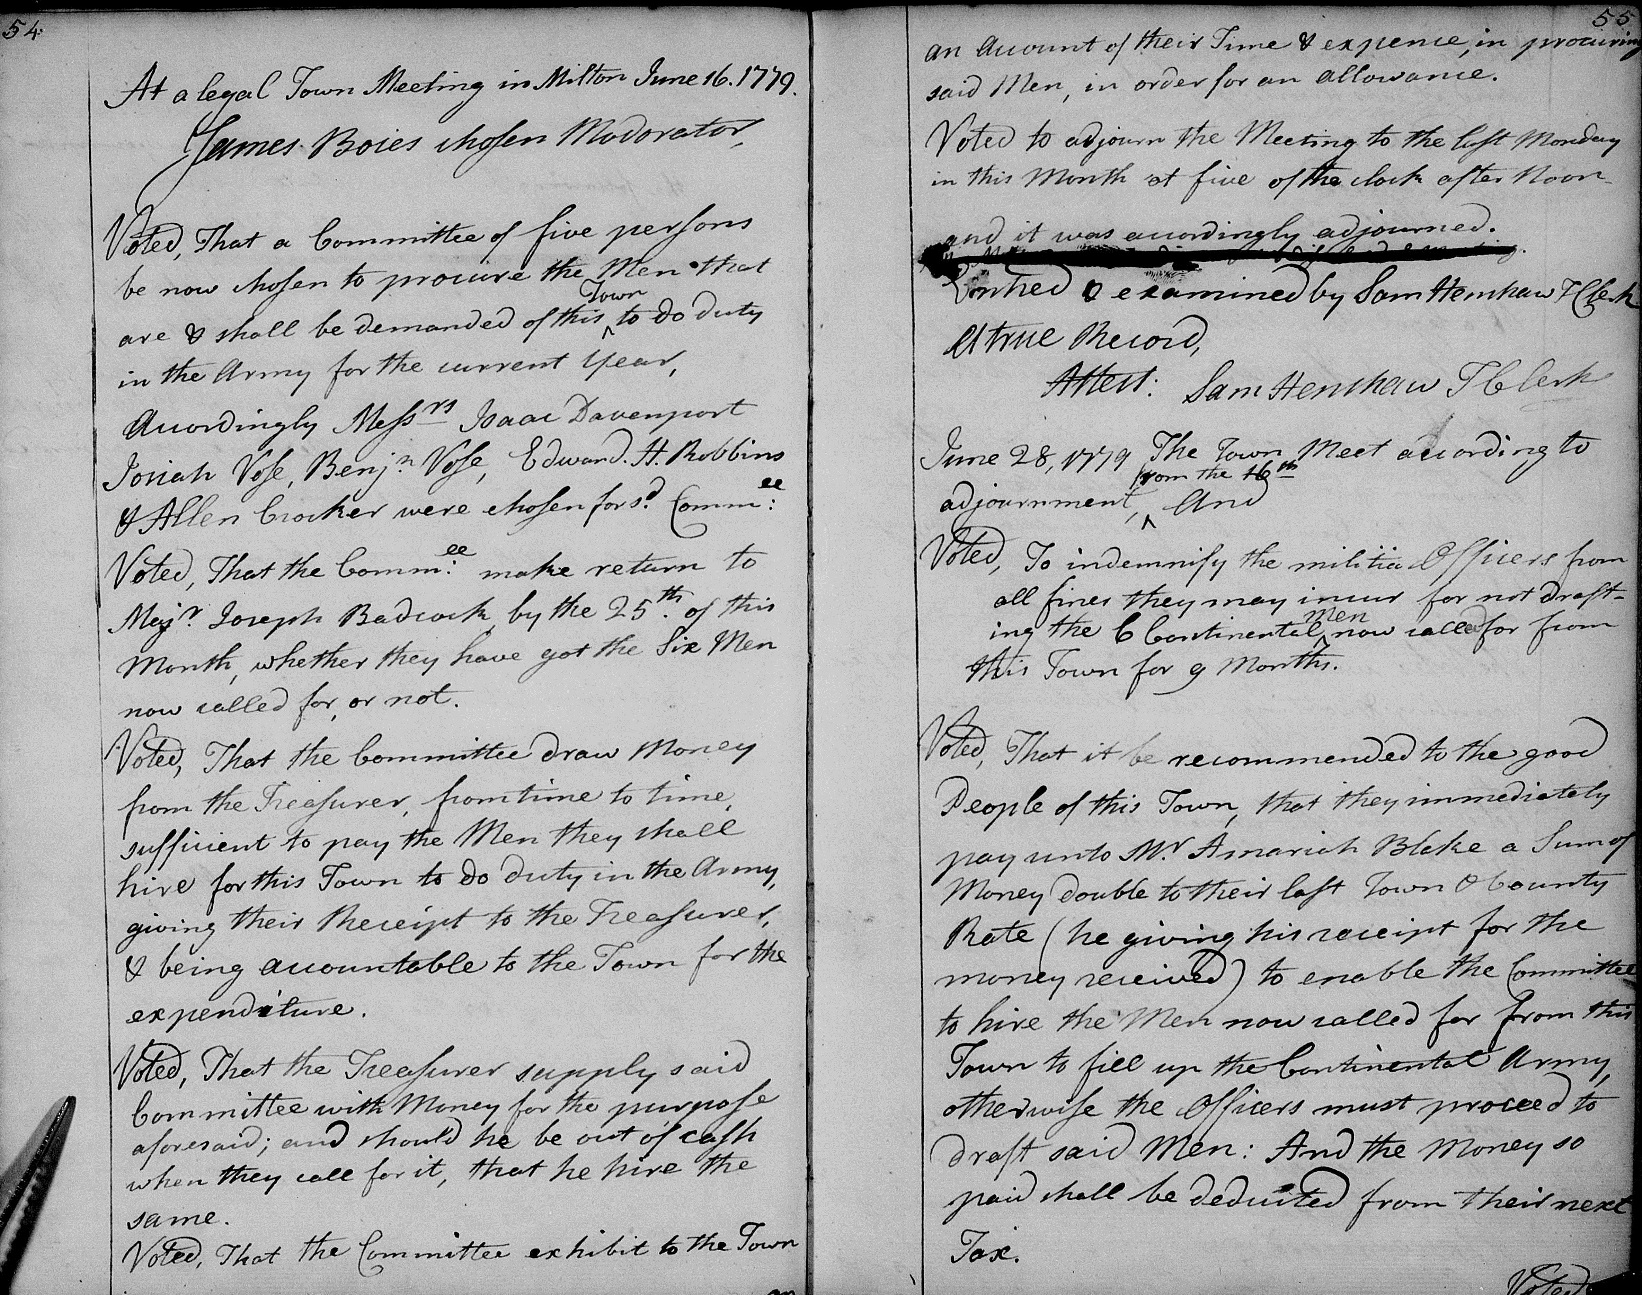 54
At a legal Town Meeting in Milton June 16. 1779.
James Boies chosen Modorator,
Voted, That a Committee of five persons
be now chosen to procure the Men that
are & shall be demanded of this Town to do duty
in the Army for the current year,
Accordingly Messrs Isaac Davenport
Josiah Vose, Benjn Vose, Edward. H. Robbins
& Allen Crocker were chosen for sd. Commee:
Voted, That the Commee: make return to
Majr. Joseph Badcock by the 25th. of this
Month, whether they have got the Six Men
now called for, or not.
Voted, That the Committee draw Money
from the Treasurer, from time to time,
sufficient to pay the Men they shall
hire for this Town to do duty in the Army,
giving their Receipt to the Treasurer,
& being accountable to the Town for the
expenditure.
Voted, That the Treasurer supply said
Committee with Money for the purpose
aforesaid; and should he be out of cash
when they call for it, that he hire the
same.
Voted, That the Committee exhibit to the Town
an
55
an Account of their Time & expence, in procuring
said Men, in order for an allowance.
Voted to adjourn the Meeting to the last Monday
in this Month at five of the clock after Noon
and it was accordingly adjourned.
& examined by Sam Henshaw T Clerk
A true Record,
Attest: Sam Henshaw T Clerk
June 28, 1779 The Town Meet according to
adjournment, from the 16th And
Voted, To indemnify the militia Officers from
all fines they may incur for not draft-
ing the 6 Continental Men now called for from
this Town for 9 Months.
Voted, That it be recommended to the good
People of this Town, that they immediately
pay unto Mr Amariah Blake a Sum of
Money double to their last Town & County
Rate (he giving his receipt for the
money received) to enable the Committee
to hire the Men now called for from this
Town to fill up the Continental Army,
otherwise the Officers must proceed to
draft said Men: And the Money so
paid shall be deducted from their next
Tax.
Voted